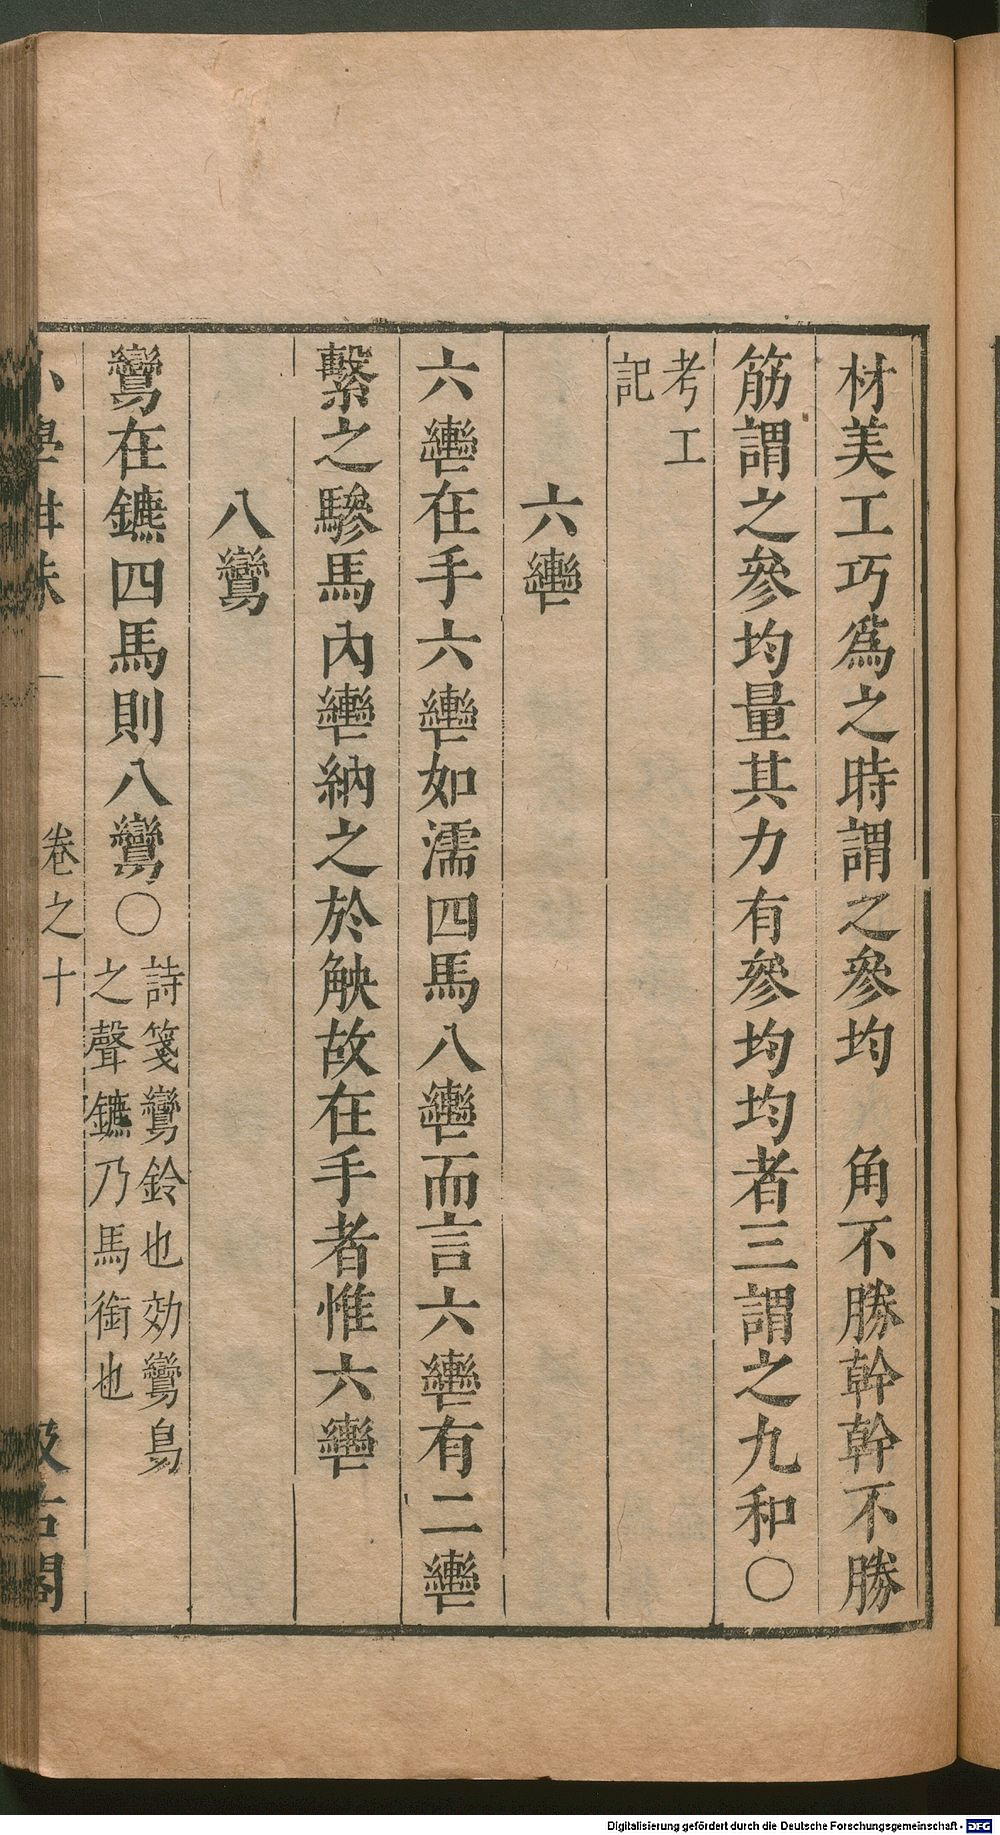 材美工巧爲之時謂之參均　角不勝幹幹不勝
筋謂之參均量其力有參均均者三謂之九和〇
考工
記
六轡
六轡在手六轡如濡四馬八轡而言六轡有二轡
繫之驂馬內轡納之於觖故在手者惟六轡
八鸞
鸞在鑣四馬則八鸞〇
詩箋鸞鈴也効鸞鳥
之聲鑣乃馬銜也
小學紺珠
卷之十
汲古閣
Digitalisierung gefördert durch die Deutsche Forschungsgemeinschaft - DFG